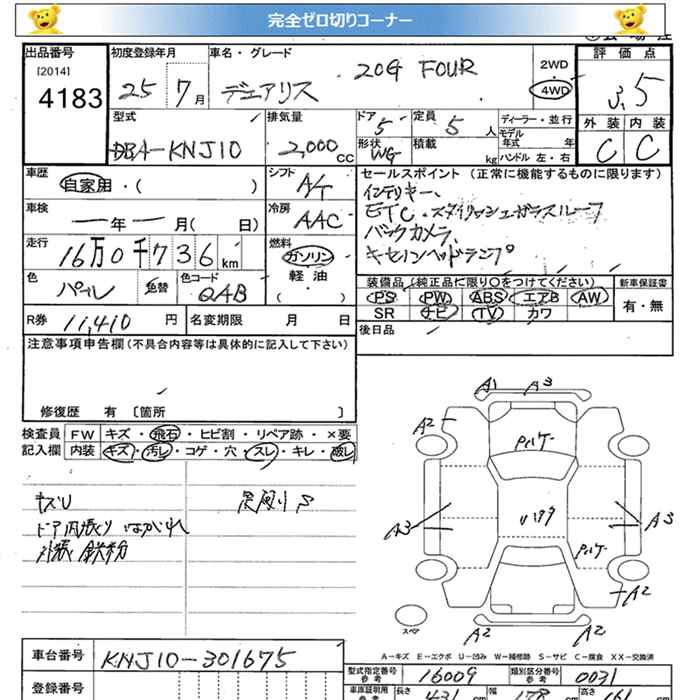 完全ゼロ切りコーナー
出品番号 初度登録年月 車名・グレード 2WD 4WD 評価点
[2014] 4183 25 7月 デュアリス 20G FOUR 3.5
型式 排気量 ドア 定員 ディーラー・並行 外装 内装
DBA-KNJ10 2,000 CC 5 5 人 モデル年式 年
形状 WG 積載 kg ハンドル 左・右 C C
車歴 自家用・( ) シフト A/T セールスポイント (正常に機能するものに限ります)
インテリキー、
車検 年 月( 日) 冷房 AAC ETC、スタイリッシュガラスルーフ
バックカメラ、
走行 16万0千736km 燃料 ガソリン 軽油 ( ) キセノンヘッドランプ
色 パール 色替 色コード QAB 装備品(純正品に限り○をつけてください) 新車保証書
PS PW ABS エアB AW 有・無
SR ナビ TV カワ
R券 11,410 円 名変期限 月 日 後日品
注意事項申告欄(不具合内容等は具体的に記入して下さい)
修復歴 有 〔箇所 〕
検査員記入欄 FW キズ・飛石・ヒビ割・リペア跡・×要
内装 キズ・汚レ・コゲ・穴・スレ・キレ・破レ
キズU
ドア内張り はがれ
外装 鉄粉
A1 A3
A2 A3 A3 A2
A2 A2
スペア
A-キズ E-エクボ U-凹み W-補修跡 S-サビ C-腐食 XX-交換済
車台番号 KNJ10-301675
型式指定番号 参考 16009 類別区分番号 参考 0031
登録番号 車庫証明用 参考 長さ 431 cm 幅 178 cm 高さ 161 cm